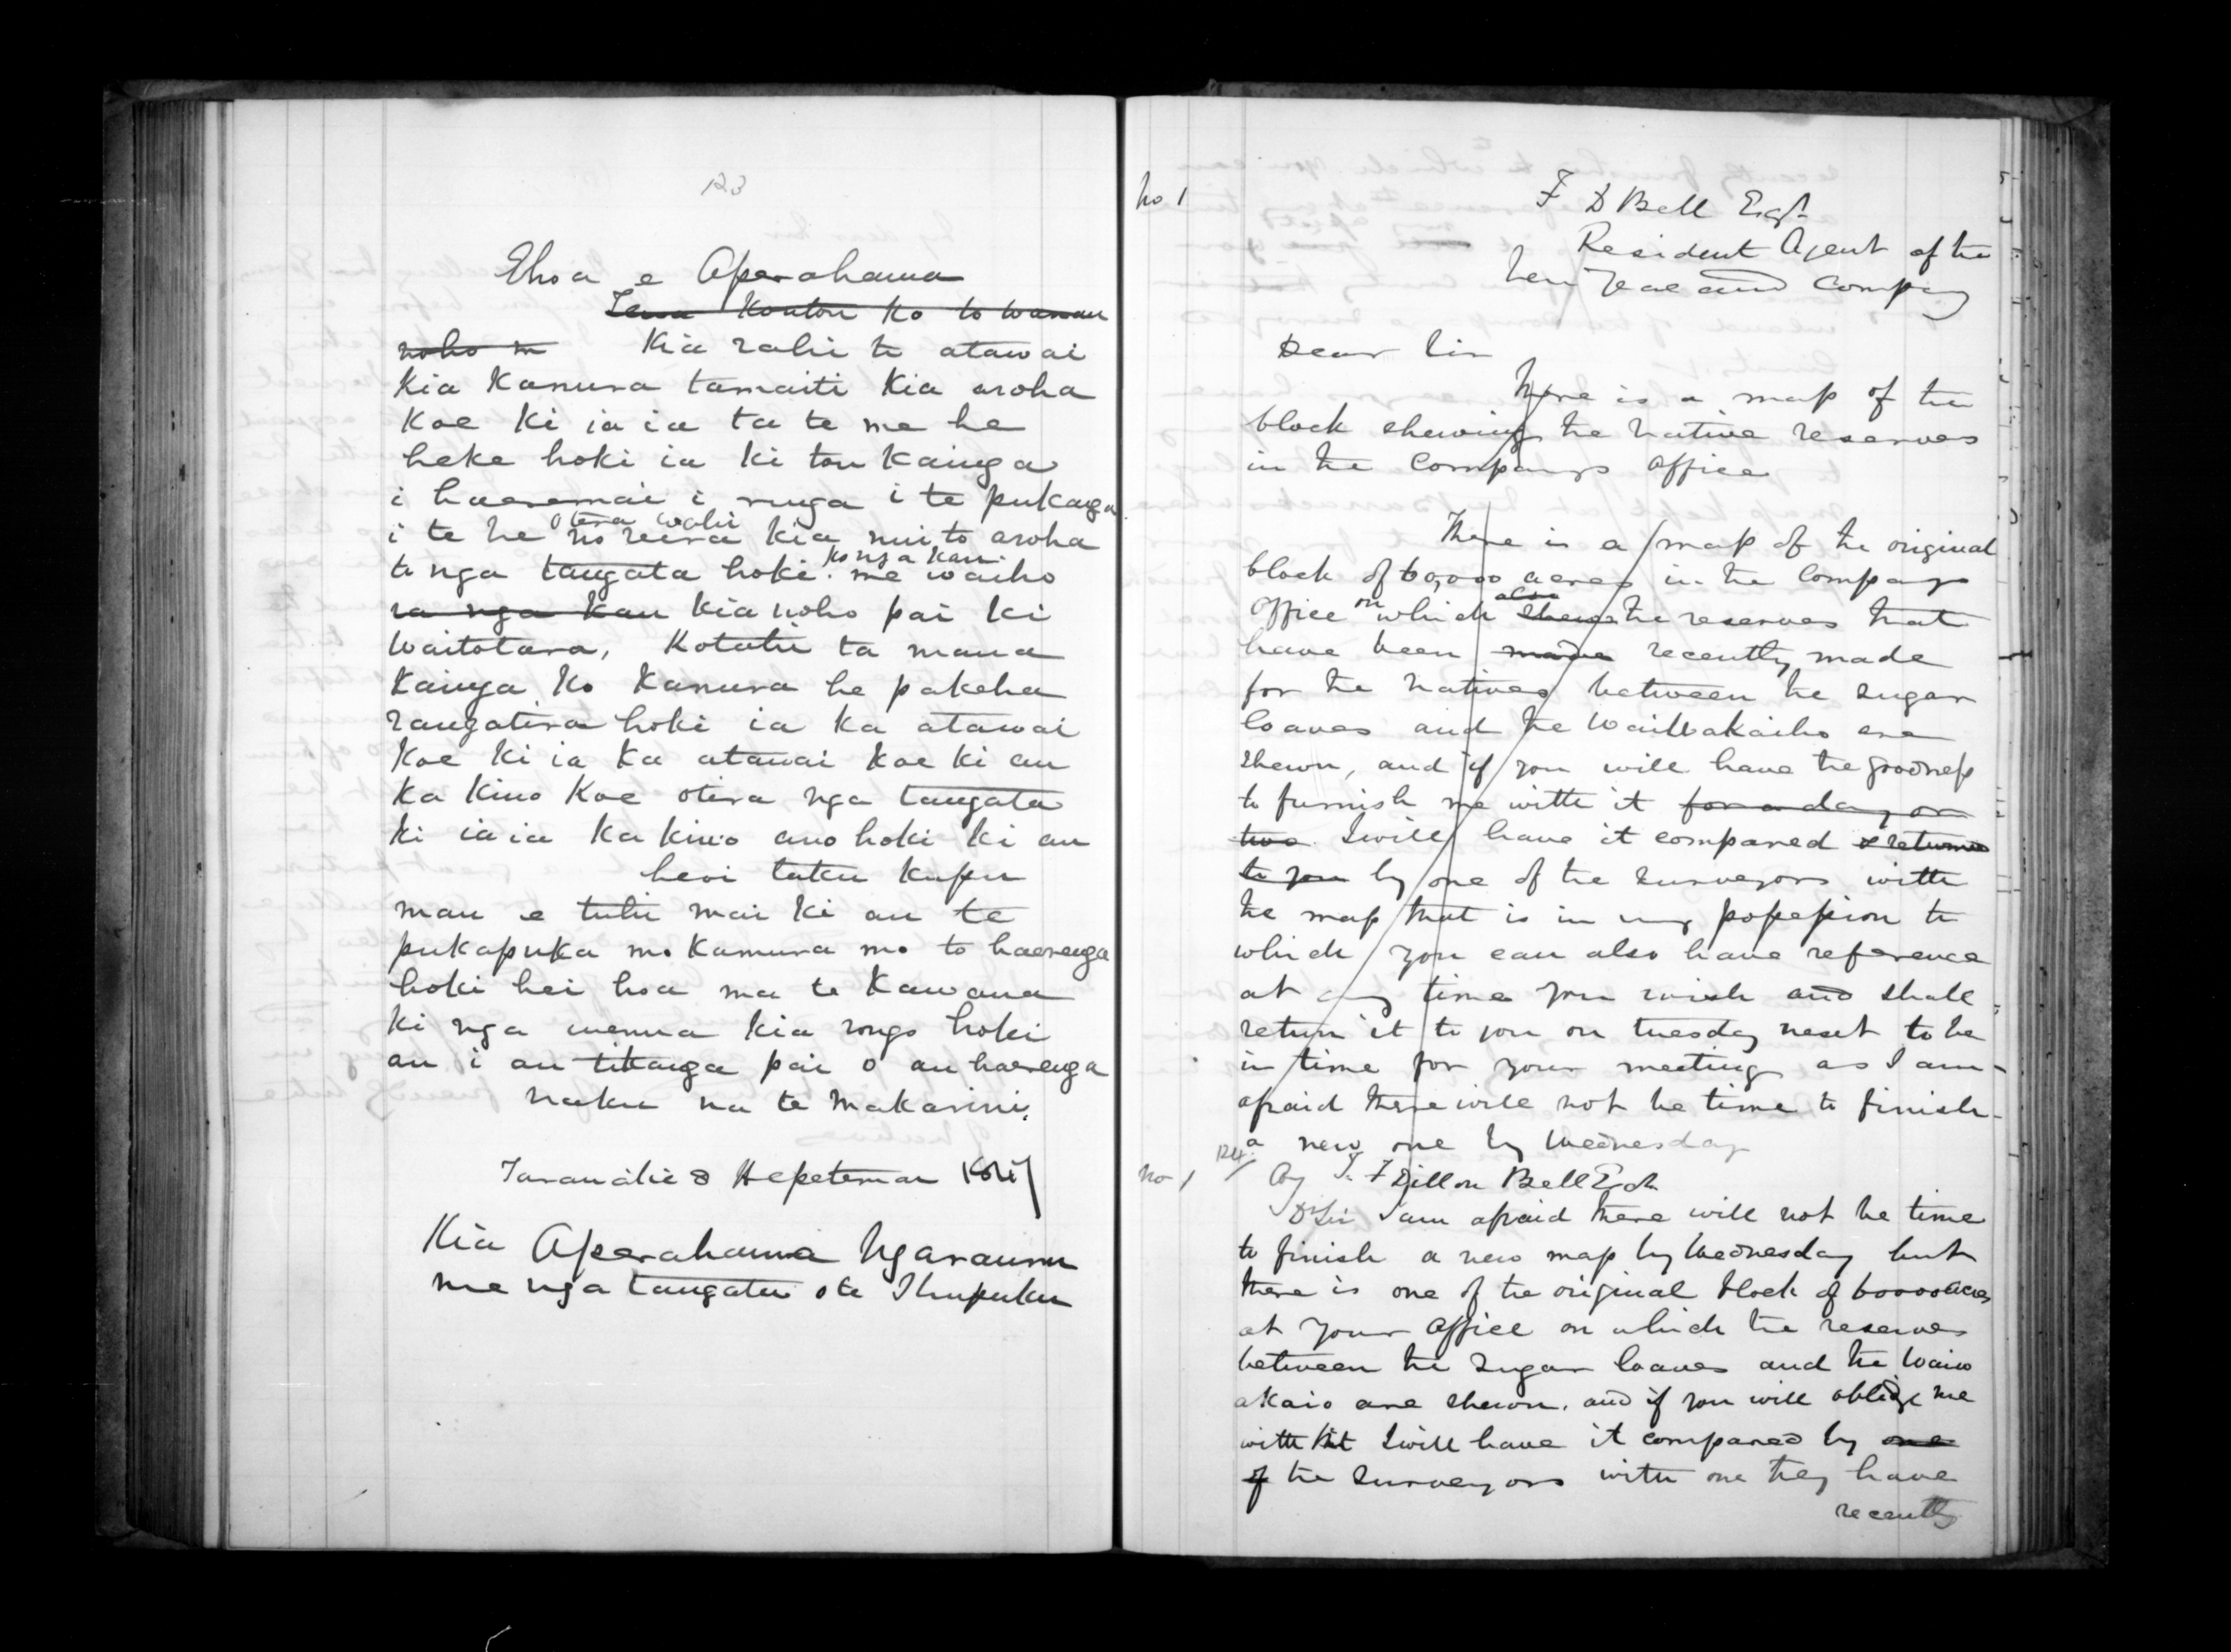 123
Ehoa e Aperahama
Tena Koutou Ko to wanau
noho
Kia rahi te atawai
Kia Kamura tamaiti Kia aroha
Koe Ki ia ia ta te me he
heke hoki ia ki tou Kainga
i haeremai i runga i te pukanga
i te he o tera wahi no reira Kia nui to aroha
te nga tangata hoki. Ko nga Kau me waiho
ra nga Kau Kia noho pai Ki
Waitotara, Kotahi ta maua
Kainga Ko Kamura he pakeha
rangatira hoki ia Ka atawai
Koe Ki ia Ka atawai Koe Ki au
Ka Kino Koe otira nga tangata
Ki ia ia Ka Kino ano hoki Ki au
heoi taku Kupu
mau e tuhi mai Ki au te
pukapuka mo Kamura mo to haerenga
hoki hei hoa ma te Kawana
Ki nga wenua Kia rongo hoki
au i au tikanga pai o au haerenga
naku na te Makarini.
Taranaki 8 Hepetema
Kia Aperahama Ngarauru
me nga tangata o te Ihupuku
No 1
F D Bell Esqr
Resident Agent of the
New Zealand Company
Dear Sir
There is a map of the
block shewing the Native reserves
in the Companys Office
There is a map of the original
block of 60,000 acres in the Companys
Office on which also shews the reserves that
have been made recently made
for the Natives between the Sugar
loaves and the Waiwakaiho are
shewn, and if you will have the goodness
to furnish me with it for a day or
two I will have it compared & returned
to you by one of the Surveyors with
the map that is in my possession to
which you can also have reference
at any time you wish and shall
return it to you on tuesday next to be
in time for your meeting as I am
afraid there will not be time to finish
a new one by Wednesday
124
No 1
F Dillon Bell Esqr
D Sir I am afraid there will not be time
to finish a new map by Wednesday but
there is one of the original block of 60000 acres
at your Office on which the reserves
between the Sugar loaves and the Waiw
akaio are shewn, and if you will oblige me
with it I will have it compared by one
of the Surveyors with one they have
recently